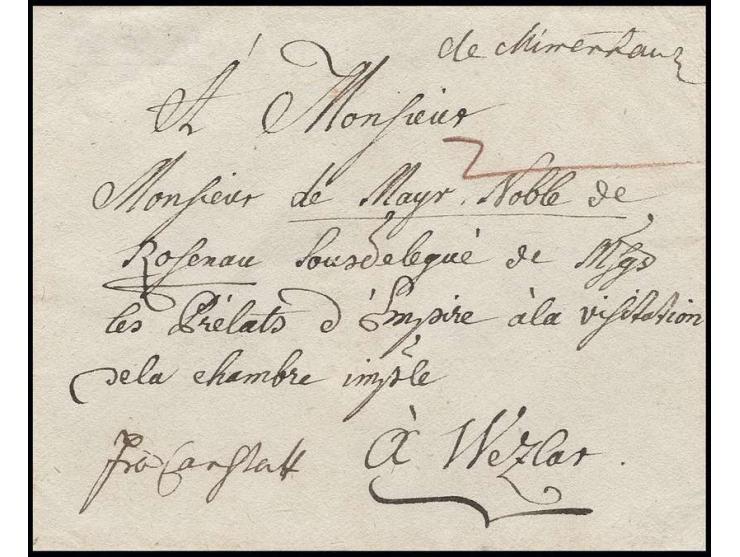 de Mimenhauz
A Monsieur
Monsieur de Mayr. Noble de
Rosenau Sousdelegué de Msgs
les Prélats d'Empire à la visitation
de la chambre imple
fro Canstatt
à Wezlar.